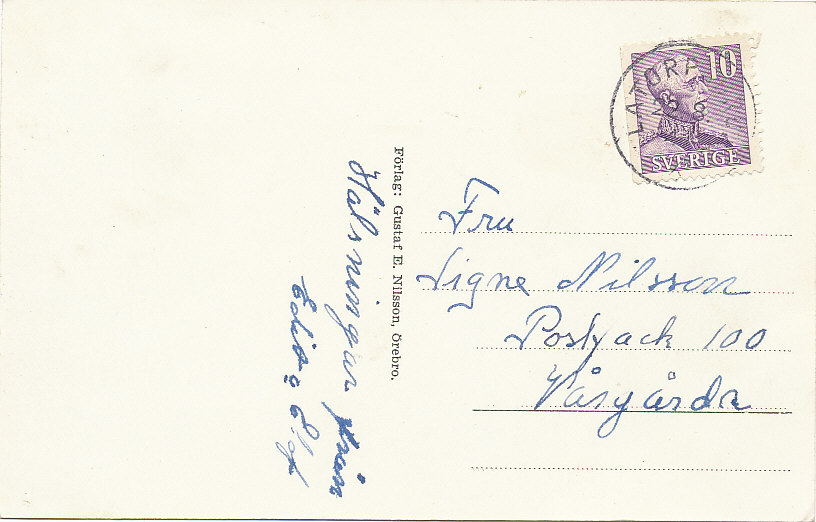 10
SVERIGE
LATORP
Förlag: Gustaf E. Nilsson, Örebro.
Hälsningar från
Fru
Signe Nilsson
Postfack 100
Vårgårda